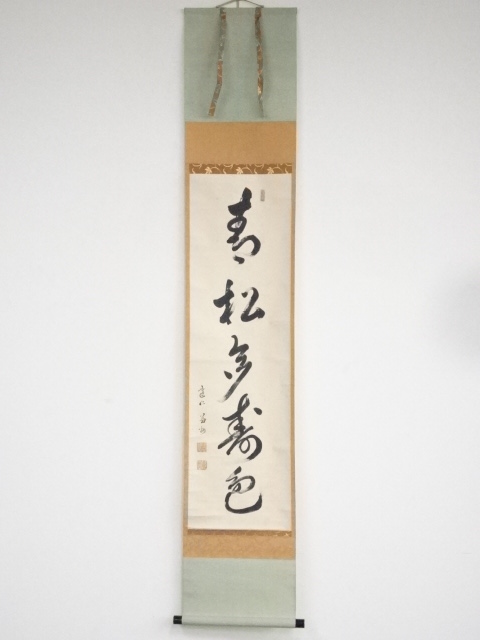 青松多寿色